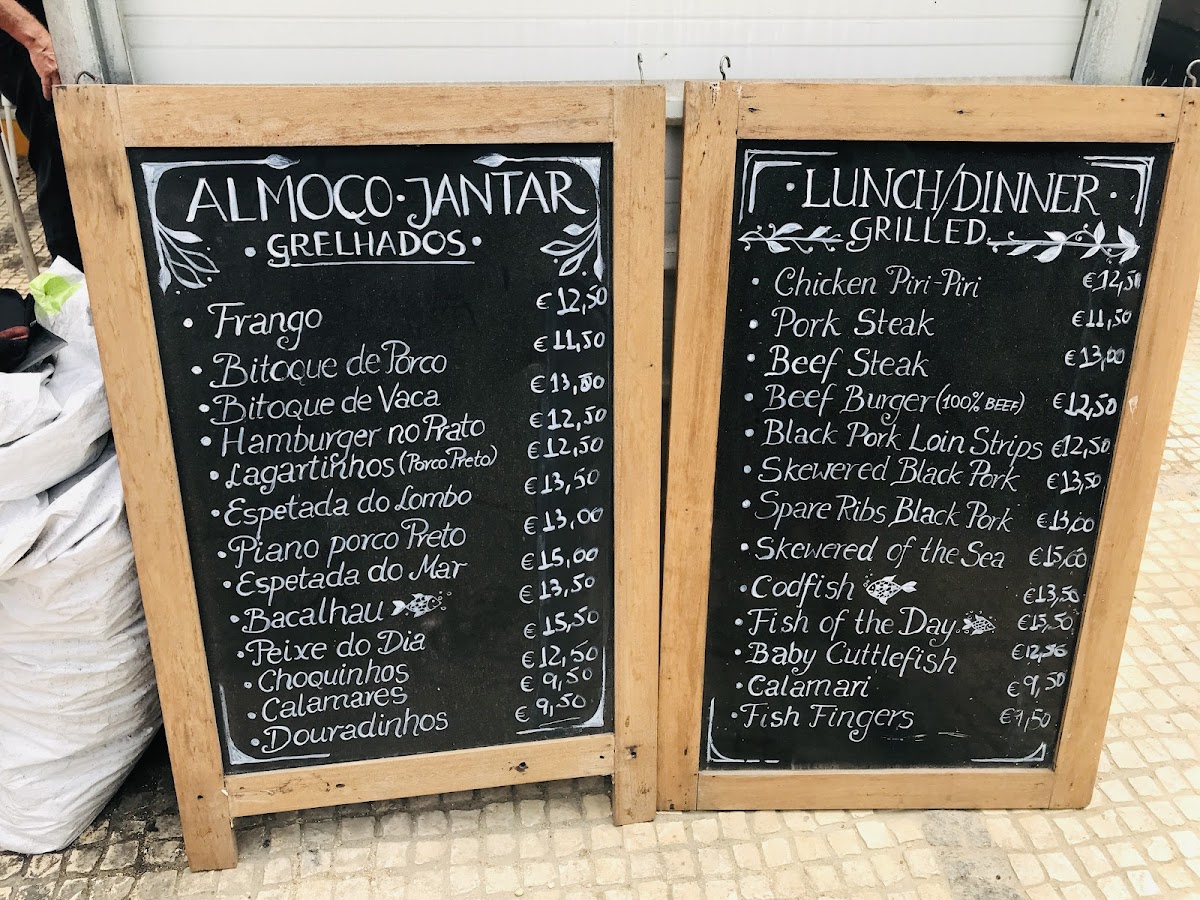 ALMOÇO·JANTAR
·GRELHADOS·
· Frango €12,50
· Bitoque de Porco €11,50
· Bitoque de Vaca €13,00
· Hamburger no Prato €12,50
· Lagartinhos (Porco Preto) €12,50
· Espetada do Lombo €13,50
· Piano porco Preto €13,00
· Espetada do Mar €15,00
· Bacalhau €13,50
· Peixe do Dia €15,50
· Choquinhos €12,50
· Calamares €9,50
· Douradinhos €9,50
·LUNCH/DINNER·
GRILLED
· Chicken Piri-Piri €12,50
· Pork Steak €11,50
· Beef Steak €13,00
· Beef Burger (100% BEEF) €12,50
· Black Pork Loin Strips €12,50
· Skewered Black Pork €13,50
· Spare Ribs Black Pork €13,00
· Skewered of the Sea €15,00
· Codfish €13,50
· Fish of the Day
· Baby Cuttlefish €12,50
· Calamari €9,50
· Fish Fingers